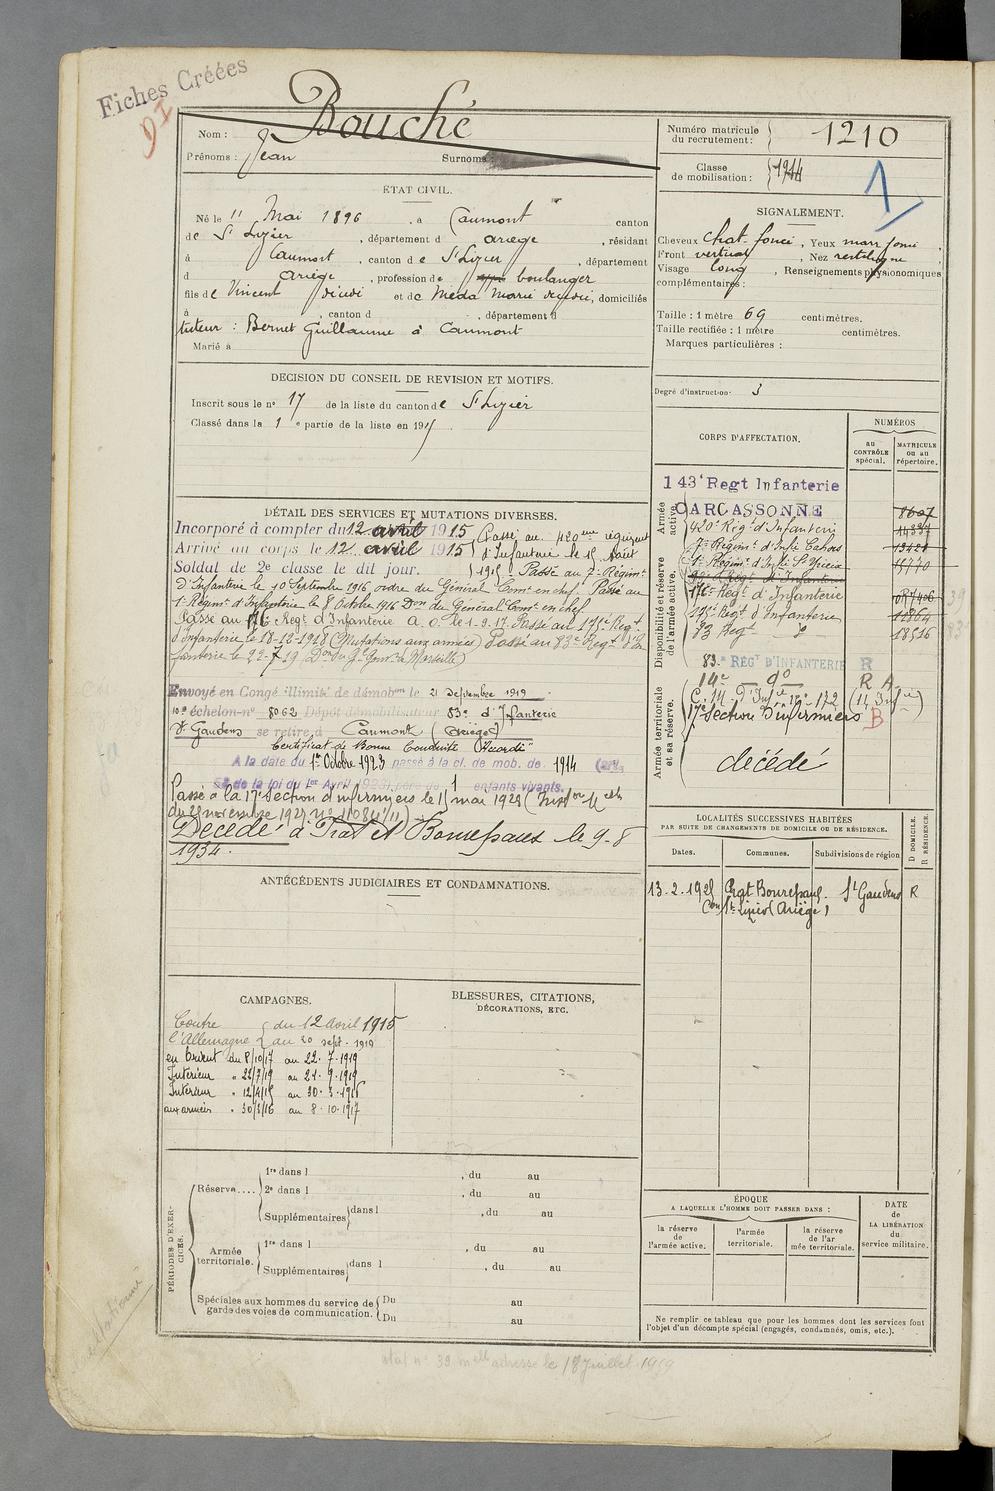 Fiches Créées
Bouché
Nom :
Prénoms : Jean Surnoms :
Numéro matricule du recrutement : 1210
Classe de mobilisation : 1914
1
ÉTAT CIVIL.
Né le 11 Mai 1896, à Caumont canton
de St Lizier, département d ariège, résidant
à Caumont, canton de St Lizier, département
d ariège, profession de boulanger
fils de Vincent et de Marie, domiciliés
à , canton d , département d
tuteur : Bernet Guillaume à Caumont
Marié à
SIGNALEMENT.
Cheveux chat. foncé, Yeux marr foncé,
Front vertical, Nez rectiligne,
Visage long, Renseignements physionomiques
complémentaires :
Taille : 1 mètre 69 centimètres.
Taille rectifiée : 1 mètre centimètres.
Marques particulières :
Degré d'instruction : 3
DECISION DU CONSEIL DE REVISION ET MOTIFS.
Inscrit sous le n° 17 de la liste du canton de St Lizier
Classé dans la 1e partie de la liste en 1915
DÉTAIL DES SERVICES ET MUTATIONS DIVERSES.
Incorporé à compter du 12 avril 1915 Passé au 420ème régiment
Arrivé au corps le 12 avril 1915 d'Infanterie le 15 août
Soldat de 2e classe le dit jour. 1915 Passé au 7e Régimt
d'Infanterie le 10 Septembre 1916 ordre du Général Comt en chef. Passé au
1er Régimt d'Infanterie le 8 Octobre 1916 Don du Général Comt en chef
Passé au 176 Regt d'Infanterie A. O. le 1-9-17. Passé au 175e Regt
d'Infanterie le 18-12-1918 (Mutations aux armées) Passé au 83e Regt d'In
fanterie le 22-7-19 (Don du Gl Gouvr de Marseille)
Envoyé en Congé illimité de démobon le 21 Septembre 1919
10e échelon-n° 8062 Dépôt démobilisateur 83e d'Infanterie
St Gaudens se retire à Caumont (Ariège)
Certificat de Bonne Conduite "Accordé"
A la date du 1er Octobre 1923 passé à la cl. de mob. de 1914 (art.
58 de la loi du 1er Avril 1923) père de 1 enfants vivants.
Passé à la 17e Section d'infirmiers le 15 mai 1928 (Inston Mlle
du 22 novembre 1927 n° 11084 1/11)
Décédé à Prat et Bonrepaux le 9-8
1934.
CORPS D'AFFECTATION.
NUMÉROS
au CONTRÔLE spécial.
MATRICULE ou au répertoire.
Armée active.
Disponibilité et réserve de l'armée active.
Armée territoriale et sa réserve.
143e Regt Infanterie
CARCASSONNE 8607
420e Régt d'Infanterie
7e Régimt d'Infie Cahors
1er Régimt d'Infie
176e Regt d'Infanterie
175e Regt d'Infanterie 12864
83 Regt 18516
83e RÉGT D'INFANTERIE R
R A
17e Section d'infirmiers B
décédé
LOCALITÉS SUCCESSIVES HABITÉES
PAR SUITE DE CHANGEMENTS DE DOMICILE OU DE RÉSIDENCE.
Dates. Communes. Subdivisions de région
D DOMICILE. R RÉSIDENCE.
13-2-1925 Prat Bonrepaux. St Gaudens R
Con St Lizier (Ariège)
ANTÉCÉDENTS JUDICIAIRES ET CONDAMNATIONS.
CAMPAGNES.
Contre du 12 avril 1915
l'Allemagne au 20 sept. 1919
en Orient du 8/10/17 au 22.7.1919
Intérieur " 22/7/19 au 21.9.1919
Intérieur " 12/4/15 au 30.3.1916
aux armées " 30/3/16 au 8.10.1917
BLESSURES, CITATIONS,
DÉCORATIONS, ETC.
PÉRIODES D'EXERCICES.
Réserve.... 1re dans l , du au
2e dans l , du au
Supplémentaires dans l , du au
Armée territoriale. 1re dans l , du au
Supplémentaires dans l , du au
Spéciales aux hommes du service de garde des voies de communication. Du au
Du au
ÉPOQUE
A LAQUELLE L'HOMME DOIT PASSER DANS :
la réserve de l'armée active.
l'armée territoriale.
la réserve de l'armée territoriale.
DATE de LA LIBÉRATION du service militaire.
Ne remplir ce tableau que pour les hommes dont les services font
l'objet d'un décompte spécial (engagés, condamnés, omis, etc.).